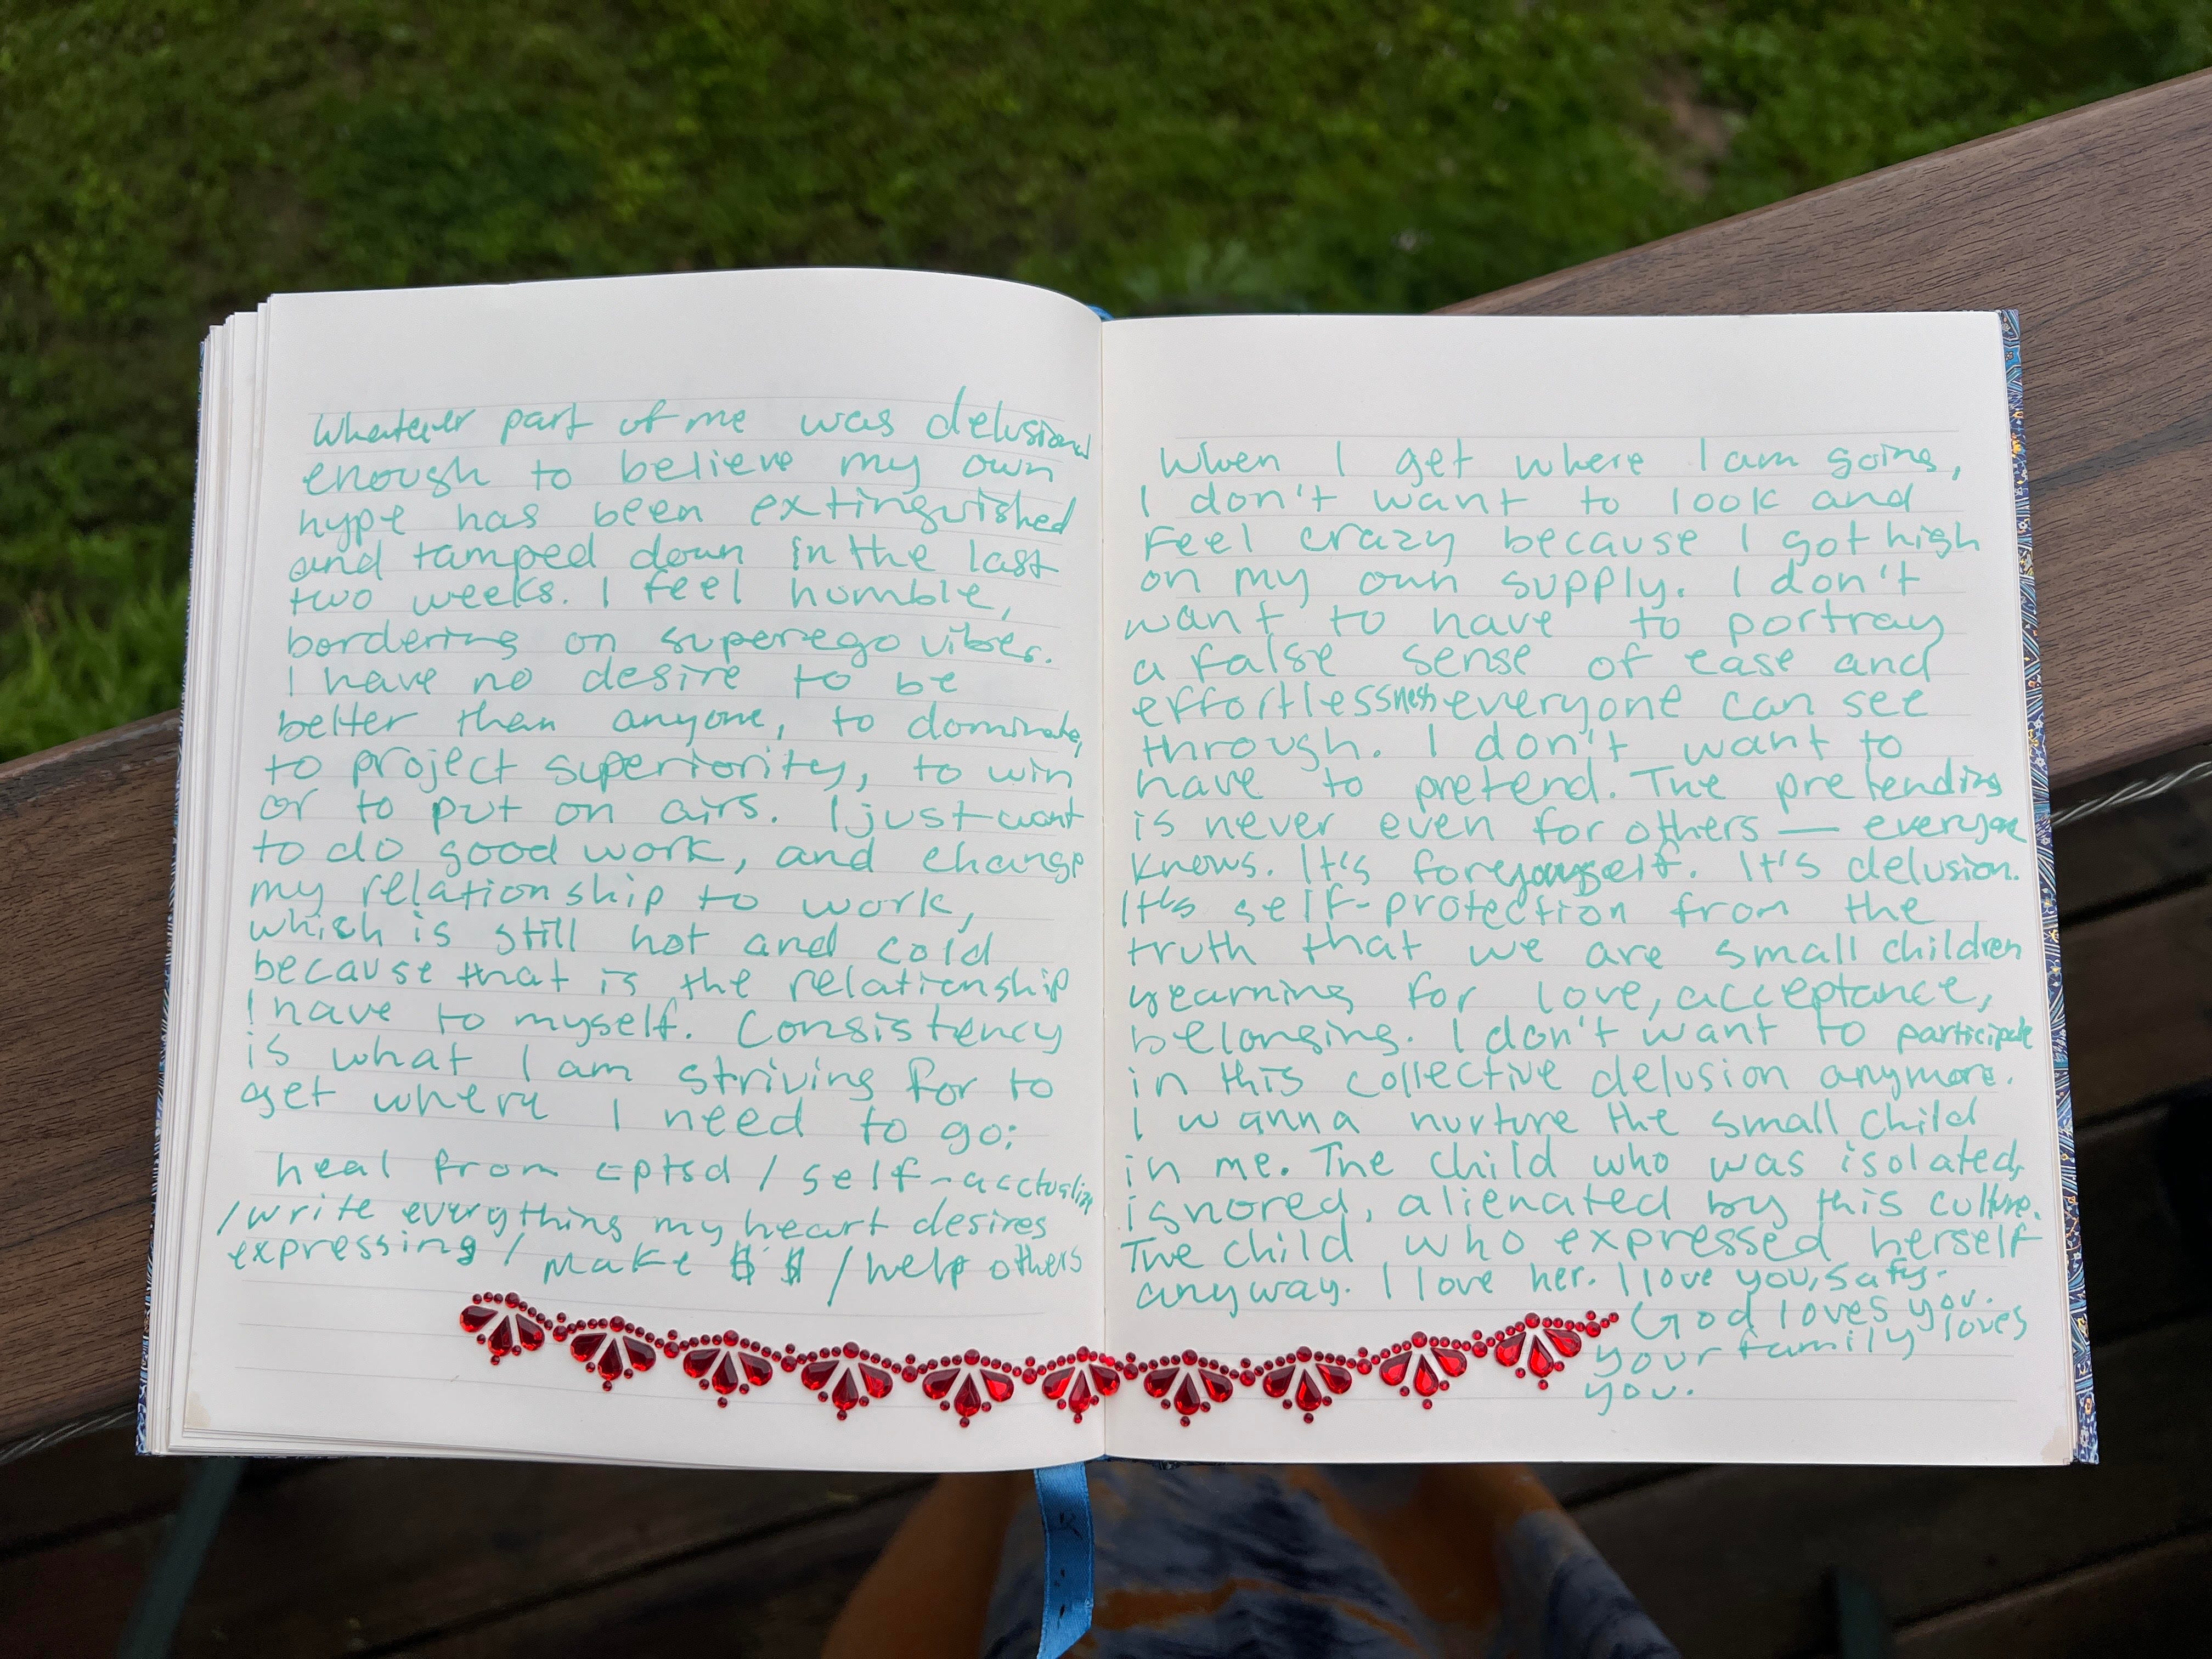 Whatever part of me was delusional
enough to believe my own
hype has been extinguished
and tamped down in the last
two weeks. I feel humble,
bordering on superego vibes.
I have no desire to be
better than anyone, to dominate,
to project superiority, to win
or to put on airs. I just want
to do good work, and change
my relationship to work,
which is still hot and cold
because that is the relationship
I have to myself. Consistency
is what I am striving for to
get where I need to go:
heal from cptsd / self-acctualize
/ write everything my heart desires
expressing / make $ $ / help others
When I get where I am going,
I don't want to look and
feel crazy because I got high
on my own supply. I don't
want to have to portray
a false sense of ease and
effortlessness everyone can see
through. I don't want to
have to pretend. The pretending
is never even for others — everyone
knows. It's for yourself. It's delusion.
It's self-protection from the
truth that we are small children
yearning for love, acceptance,
belonging. I don't want to participate
in this collective delusion anymore.
I wanna nurture the small child
in me. The child who was isolated,
ignored, alienated by this culture.
The child who expressed herself
anyway. I love her. I love you, Safy.
God loves you.
your family loves
you.